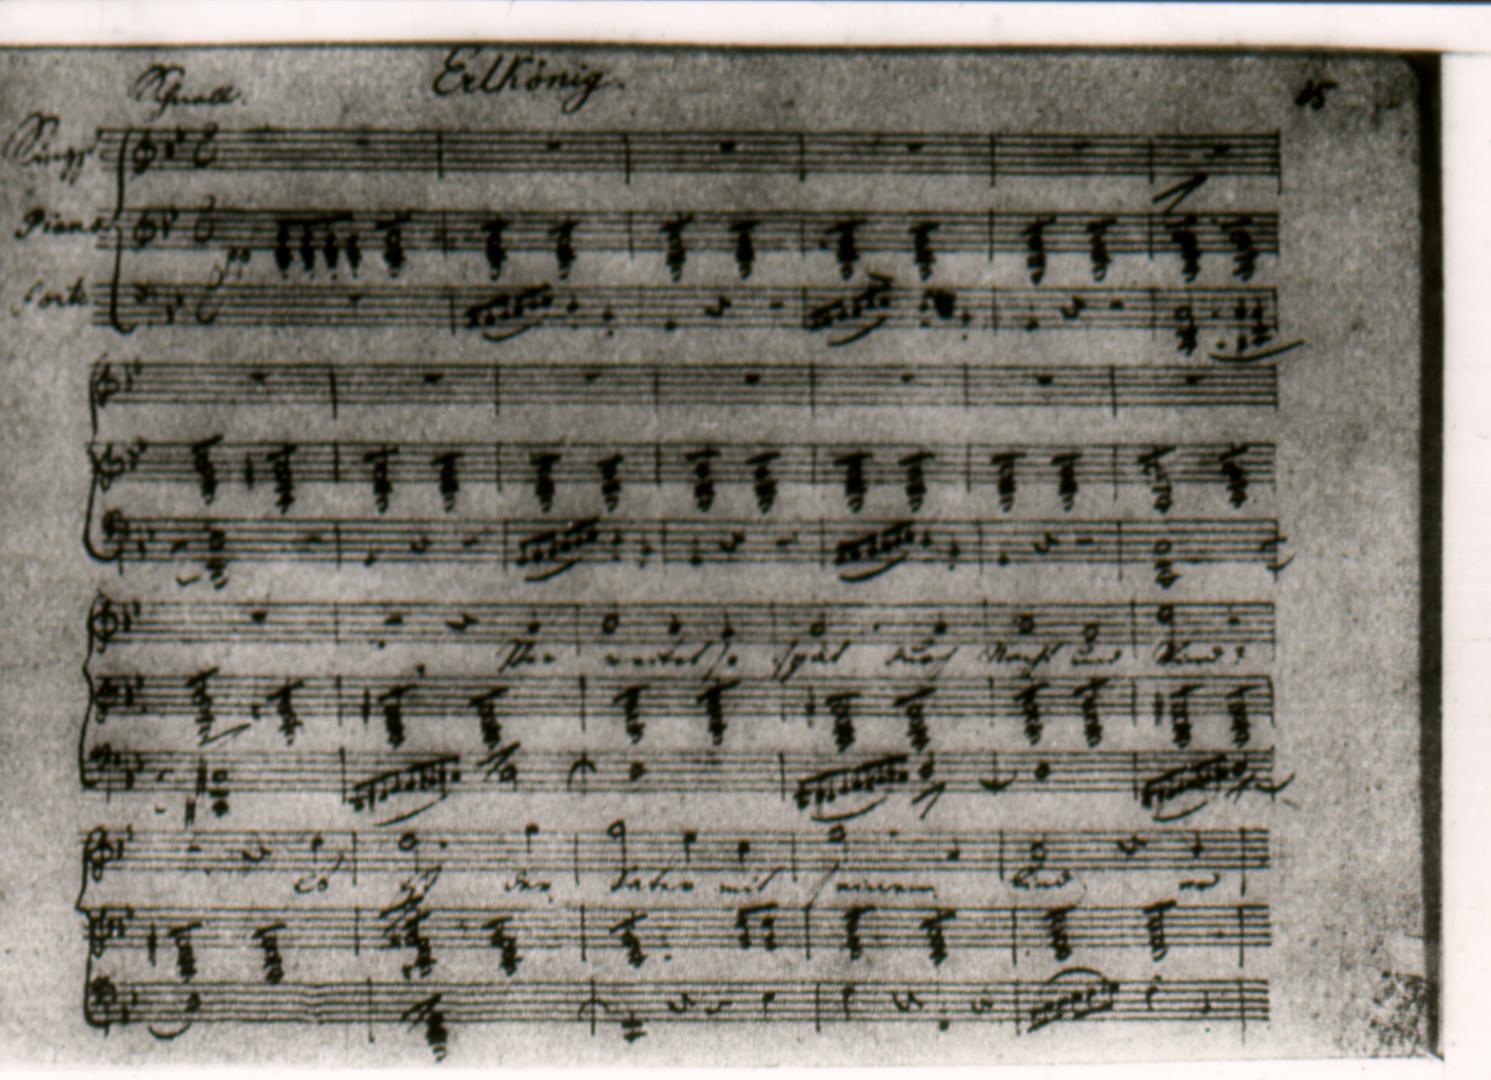 Erlkönig.
Schnell.
15
Singst.
Piano
Forte
pp
Wer reitet so spät durch Nacht und Wind?
Es ist der Vater mit seinem Kind er